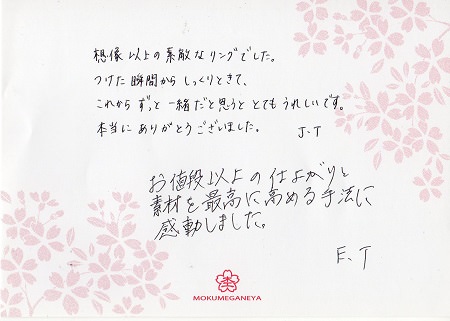 想像以上の素敵なリングでした。
つけた瞬間からしっくりときて、
これからずっと一緒だと思うと とてもうれしいです。
本当にありがとうございました。 J.T
お値段以上の仕上がりと
素材を最高に高める手法に
感動しました。
F.T
MOKUMEGANEYA